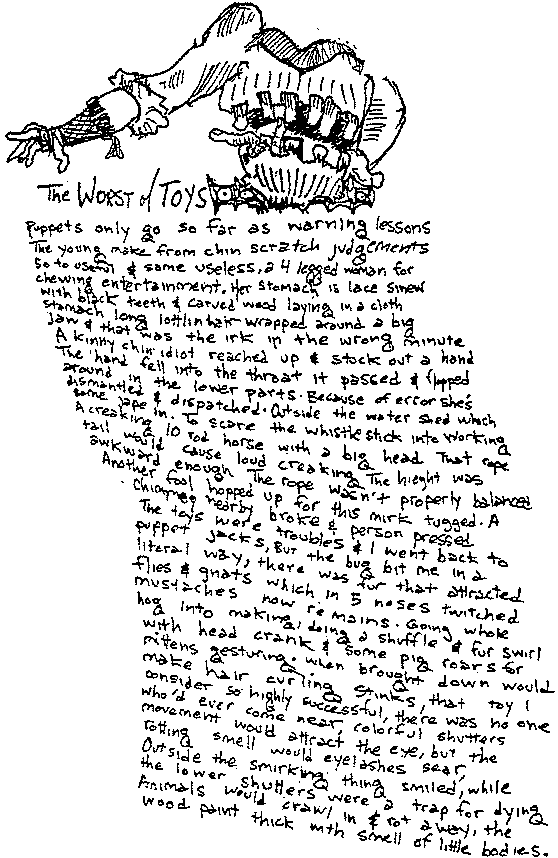 The WORST of TOYS
Puppets only go so far as warning lessons
The young make from chin scratch judgements
So to useful & some useless, a 4 legged woman for
chewing entertainment, Her stomach is lace sinew
with black teeth & carved wood laying in a cloth
stomach long lottlin hair wrapped around a big
jaw & that was the irk in the wrong minute
A kinny chin idiot reached up & stock out a hand
The hand fell into the throat it passed & flopped
around in the lower parts. Because of error she's
dismantled & dispatched. Outside the water shed which
some jape in. To scare the whistle stick into working
A creaking 10 rod horse with a big head That rope
tail would cause loud creaking The hieght was
awkward enough The rope wasn't properly balanced
Another fool hopped up for this mirk tugged. A
Chimney nearby broke & person pressed
The toys were troubles & I went back to
puppet jacks, But the bug bit me in a
literal way, there was fur that attracted
flies & gnats which in 5 noses twitched
mustaches now remains. Going whole
hog into making, doing a shuffle & fur swirl
with head crank & some pig roars for
mittens gesturing. when brought down would
make hair curling stinks, that toy I
consider so highly successful, there was no one
who'd ever come near, colorful shutters
movement would attract the eye, but the
rotting smell would eyelashes sear,
Outside the smirking thing smiled, while
the lower shutters were a trap for dying
Animals would crawl in & rot away, the
wood paint thick with smell of little bodies.